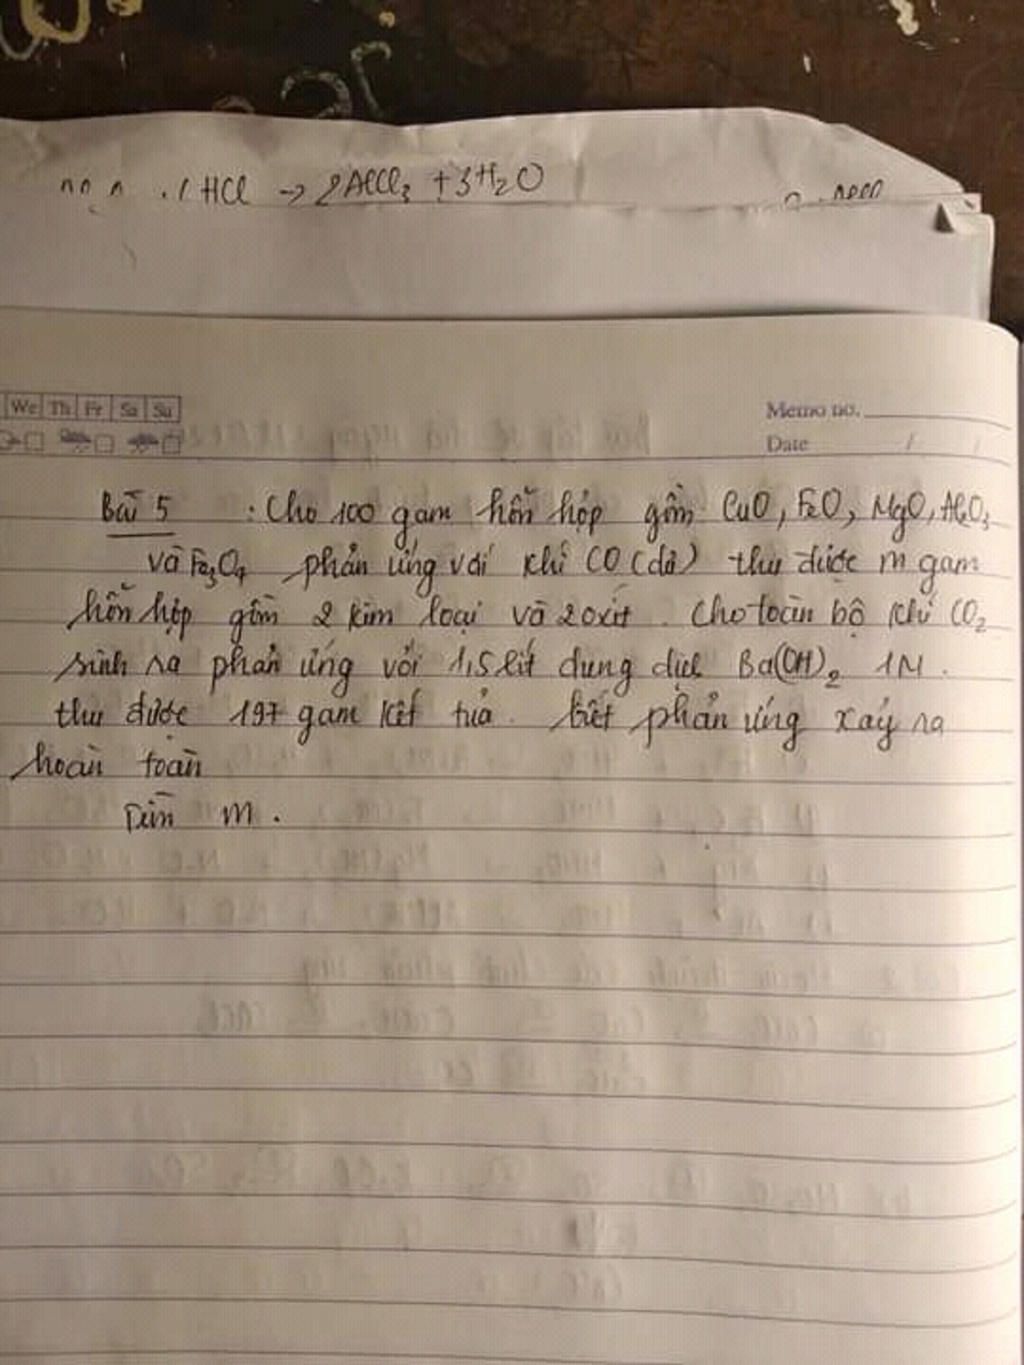 HCl → 2AlCl3 + 3H2O
We Th Fr Sa Su
Memo no.
Date / /
Bài 5 : Cho 100 gam hỗn hợp gồm CuO, FeO, MgO, Al2O3
và Fe3O4 phản ứng với khí CO (dư) thu được m gam
hỗn hợp gồm 2 kim loại và 2 oxit. Cho toàn bộ khí CO2
sinh ra phản ứng với 1,5 lít dung dịch Ba(OH)2 1M.
thu được 197 gam kết tủa. biết phản ứng xảy ra
hoàn toàn
Tìm m.